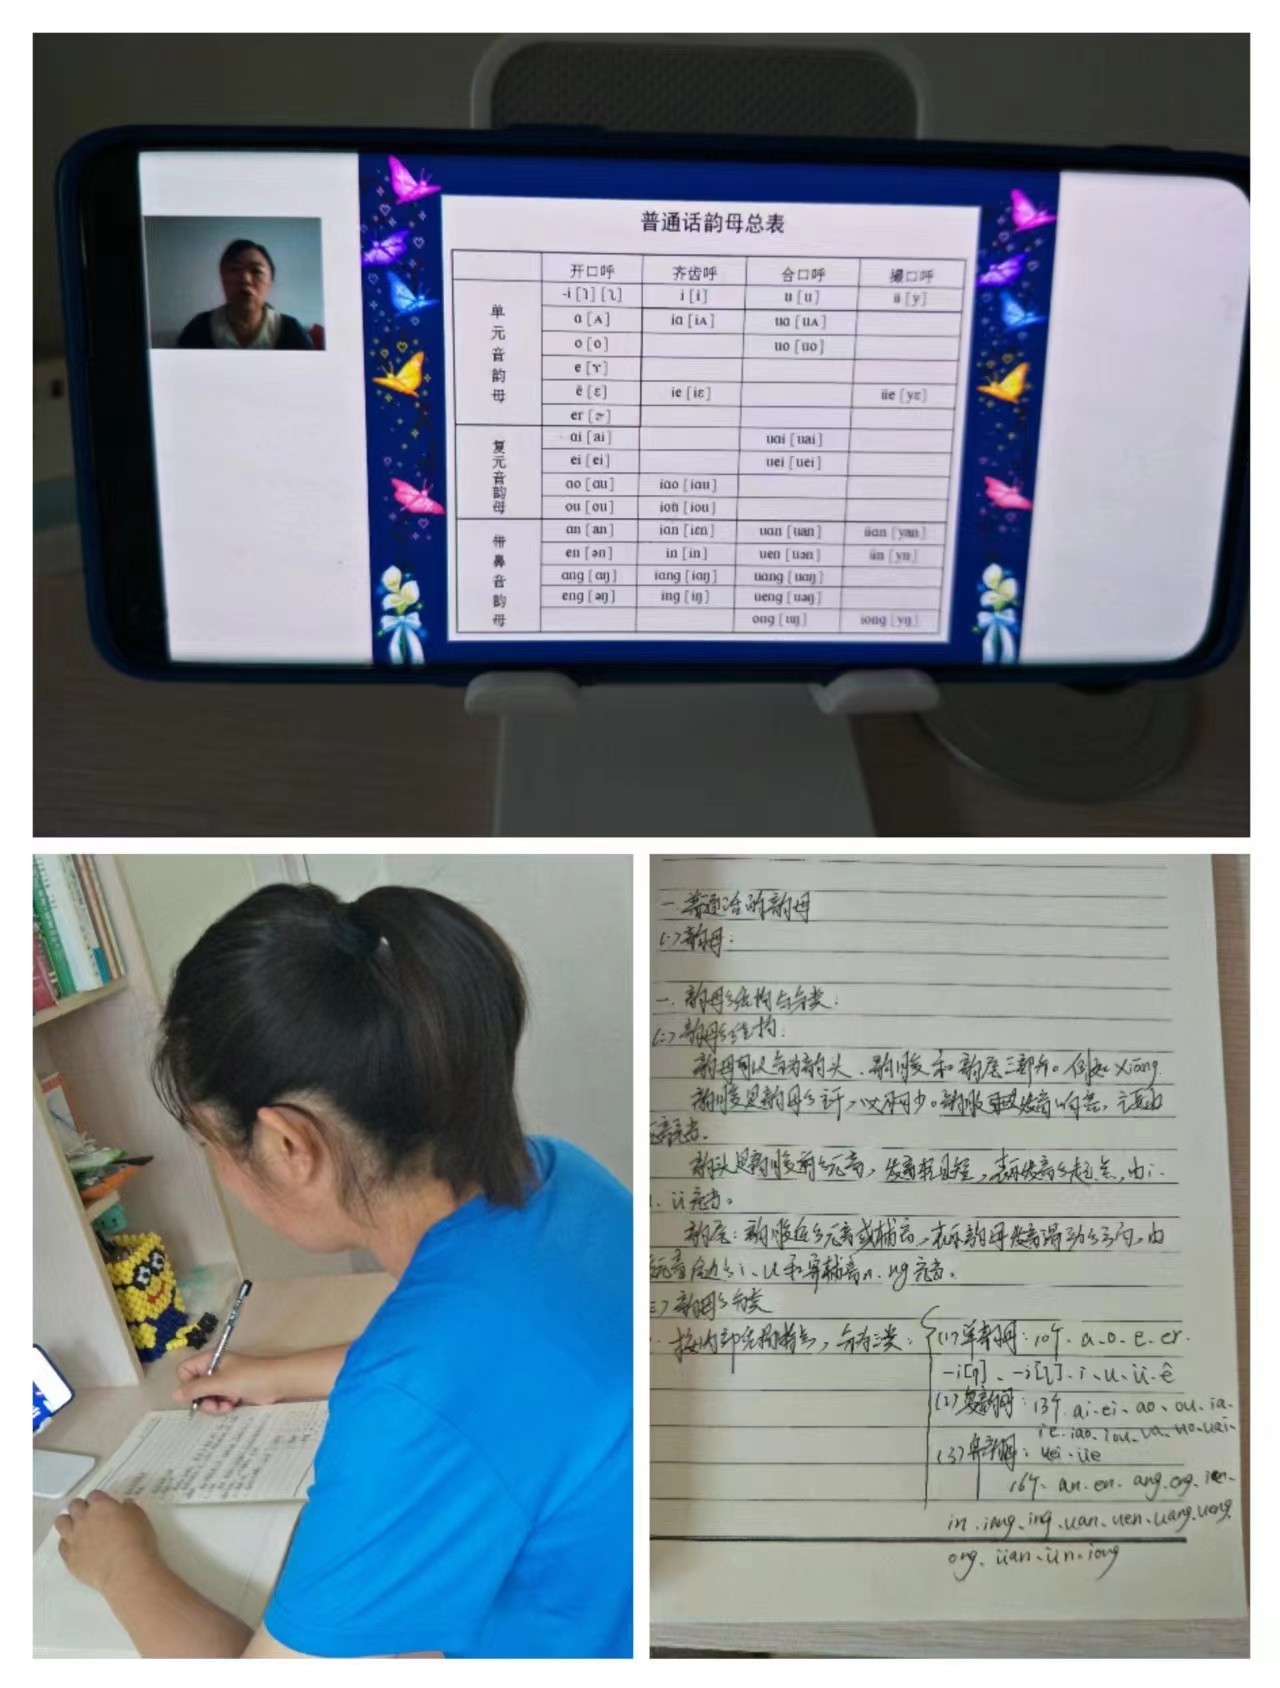 普通话韵母总表
开口呼 齐齿呼 合口呼 撮口呼
单元音韵母
-i [ɿ] [ʅ] i [i] u [u] ü [y]
ɑ [ᴀ] iɑ [iᴀ] uɑ [uᴀ]
o [o] uo [uo]
e [ɤ]
ê [ɛ] ie [iɛ] üe [yɛ]
er [ɚ]
复元音韵母
ɑi [ai] uɑi [uai]
ei [ei] uei [uei]
ɑo [ɑu] iɑo [iɑu]
ou [ou] iou [iou]
带鼻音韵母
ɑn [an] iɑn [iɛn] uɑn [uan] üɑn [yan]
en [ən] in [in] uen [uən] ün [yn]
ɑng [ɑŋ] iɑng [iɑŋ] uɑng [uɑŋ]
eng [əŋ] ing [iŋ] ueng [uəŋ]
ong [uŋ] iong [yŋ]
一. 普通话的韵母
(一)韵母:
一. 韵母的结构与分类:
(二)韵母的结构.
韵母可以分为韵头、韵腹和韵尾三部分。例如 xiāng
韵腹是韵母的主干,必不可少。韵腹 发音响亮,主要由
元音充当。
韵头是韵腹前的元音,发音轻且短,表示发音的起点,由i.
u. ü充当。
韵尾:韵腹后的元音或辅音,表示韵母发音滑动的方向,由
元音 i、u和鼻辅音n、ng充当。
(三)韵母的分类
按内部结构特点,分为三类: (1)单韵母:10个. a.o.e.er.
-i[ɿ]、-i[ʅ].i、u.ü.ê
(2)复韵母:13个. ai.ei、ao、ou.ia.
ie.iao.iou.ua.uo.uai.
(3)鼻韵母: uei.üe
16个. an.en.ang.eng.ian.
in.iang.ing.uan.uen.uang.ueng.
ong.üan.ün.iong